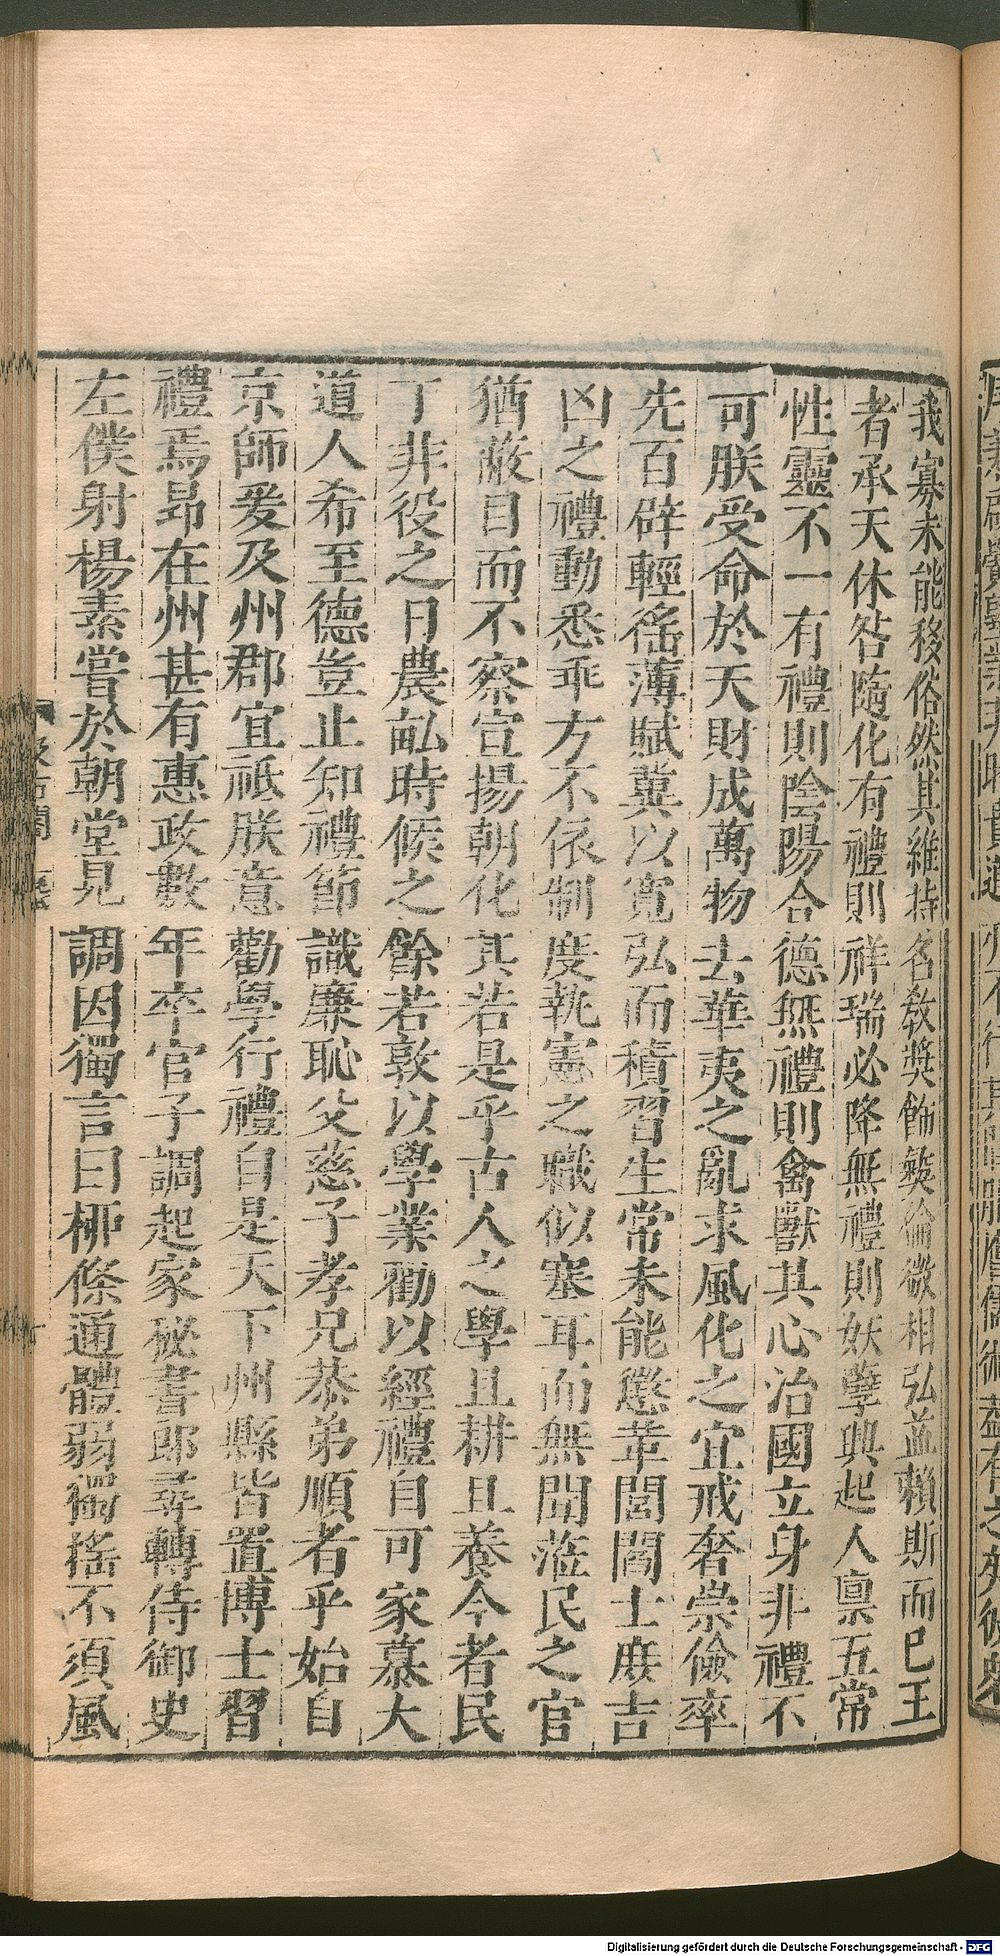 我寡未能移俗然其維持名敎奬飾彜倫微相弘益賴斯而巳王
者承天休咎隨化有禮則祥瑞必降無禮則妖孽興起人稟五常
性靈不一有禮則陰陽合德無禮則禽獸其心治國立身非禮不
可朕受命於天財成萬物去華夷之亂求風化之宜戒奢崇儉率
先百辟輕徭薄賦冀以寬弘而積習生常未能懲革閭閻士庶吉
凶之禮動悉乖方不依制度執憲之職似塞耳而無聞蒞民之官
猶蔽目而不察宣揚朝化其若是乎古人之學且耕且養今者民
丁非役之日農畝時候之餘若敦以學業勸以經禮自可家慕大
道人希至德豈止知禮節識廉恥父慈子孝兄恭弟順者乎始自
京師爰及州郡宜祗朕意勸學行禮自是天下州縣皆置博士習
禮焉昂在州甚有惠政數年卒官子調起家秘書郎尋轉侍御史
左僕射楊素嘗於朝堂見調因獨言曰桺條通體弱獨搖不須風
Digitalisierung gefördert durch die Deutsche Forschungsgemeinschaft - DFG